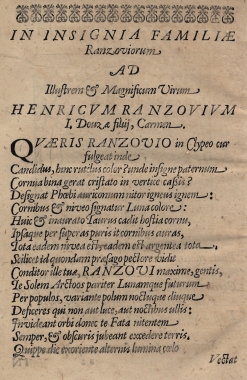 IN INSIGNIA FAMILIÆ
Ranzoviorum
AD
Illustrem & Magnificum Virum
HENRICVM RANZOVIVM
I. Douzæ filij, Carmen.
QVÆRIS RANZOVIO in Clypeo cur
fulgeat inde
Candidus, hinc rutilus color? unde insigne paternum
Cornua bina gerat cristato in vertice cassis?
Designat Phœbi auricomum nitor igneus ignem:
Cornibus & niveo signatur Luna colore:
Huic & inaurato Taurus cadit hostia cornu,
Ipsaque per superas puris it cornibus auras,
Iota eadem nivea est, eadem est argentea tota.
Scilicet id quondam præsago pectore vidit
Conditor ille tuæ, RANZOVI maxime, gentis,
Te Solem Arcthoo pariter Lunamque futurum
Per populos, variante polum noctuque diuque
Defueris qui non aut luce, aut noctibus ullis:
Invideant orbi donec te Fata nitentem
Semper, & obscuris jubeant excedere terris,
Quippe diu exoriante alternis lumina cælo
Vectat